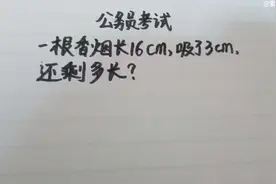 公务员考试
一根香烟长16cm,吸了3cm,
还剩多长?